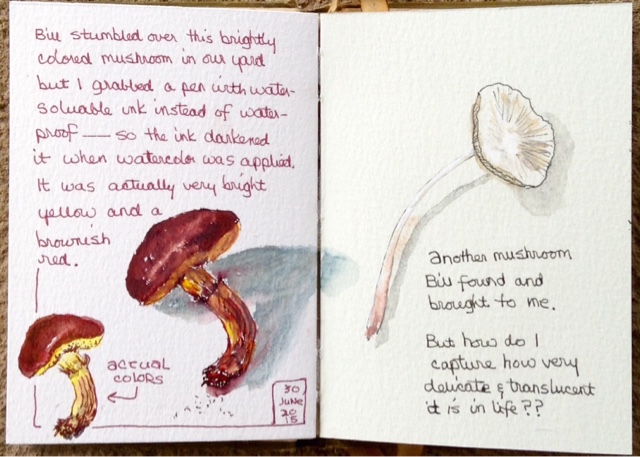 Bill stumbled over this brightly
colored mushroom in our yard
but I grabbed a pen with water-
soluable ink instead of water-
proof — so the ink darkened
it when watercolor was applied.
It was actually very bright
yellow and a
brownish
red.
actual
colors
30
June
20
15
another mushroom
Bill found and
brought to me.
But how do I
capture how very
delicate & translucent
it is in life??